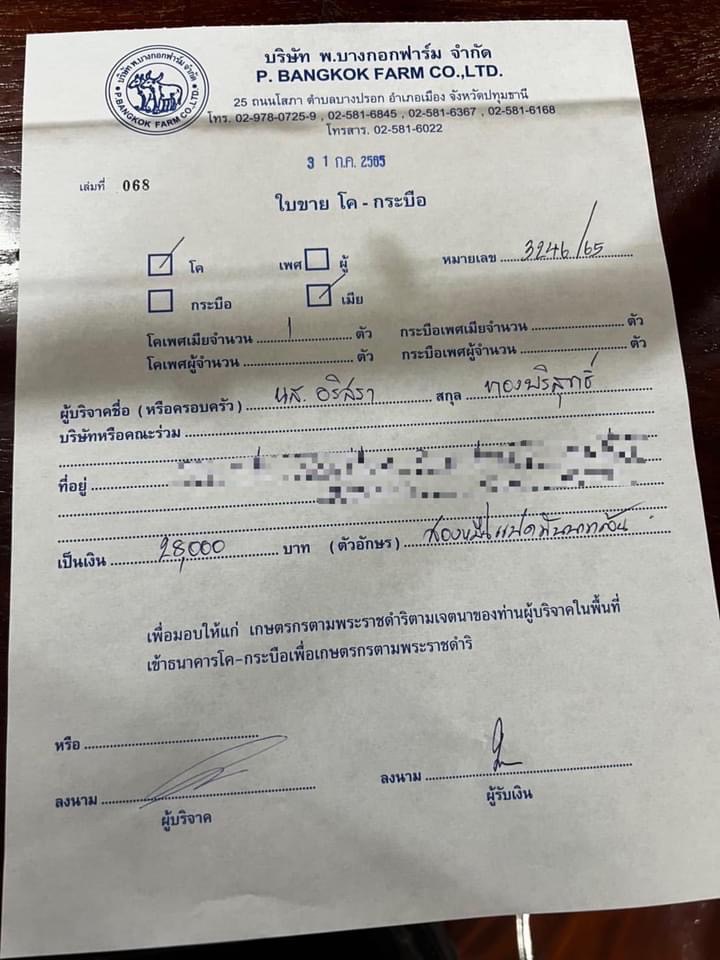 บริษัท พ.บางกอกฟาร์ม จำกัด
P. BANGKOK FARM CO.,LTD.
บริษัท พ.บางกอกฟาร์ม จำกัด
P. BANGKOK FARM CO.,LTD.
25 ถนนโสภา ตำบลบางปรอก อำเภอเมือง จังหวัดปทุมธานี
โทร. 02-978-0725-9 , 02-581-6845 , 02-581-6367 , 02-581-6168
โทรสาร. 02-581-6022
31 ก.ค. 2565
เล่มที่ 068
ใบขาย โค - กระบือ
โค เพศ ผู้ หมายเลข 3246/65
กระบือ เมีย
โคเพศเมียจำนวน 1 ตัว กระบือเพศเมียจำนวน ตัว
โคเพศผู้จำนวน ตัว กระบือเพศผู้จำนวน ตัว
ผู้บริจาคชื่อ (หรือครอบครัว) นส. อริสรา สกุล ทองบริสุทธิ์
บริษัทหรือคณะร่วม
ที่อยู่
เป็นเงิน 28,000 บาท (ตัวอักษร) สองหมื่นแปดพันบาทถ้วน
เพื่อมอบให้แก่ เกษตรกรตามพระราชดำริตามเจตนาของท่านผู้บริจาคในพื้นที่
เข้าธนาคารโค-กระบือเพื่อเกษตรกรตามพระราชดำริ
หรือ
ลงนาม ลงนาม
ผู้บริจาค ผู้รับเงิน